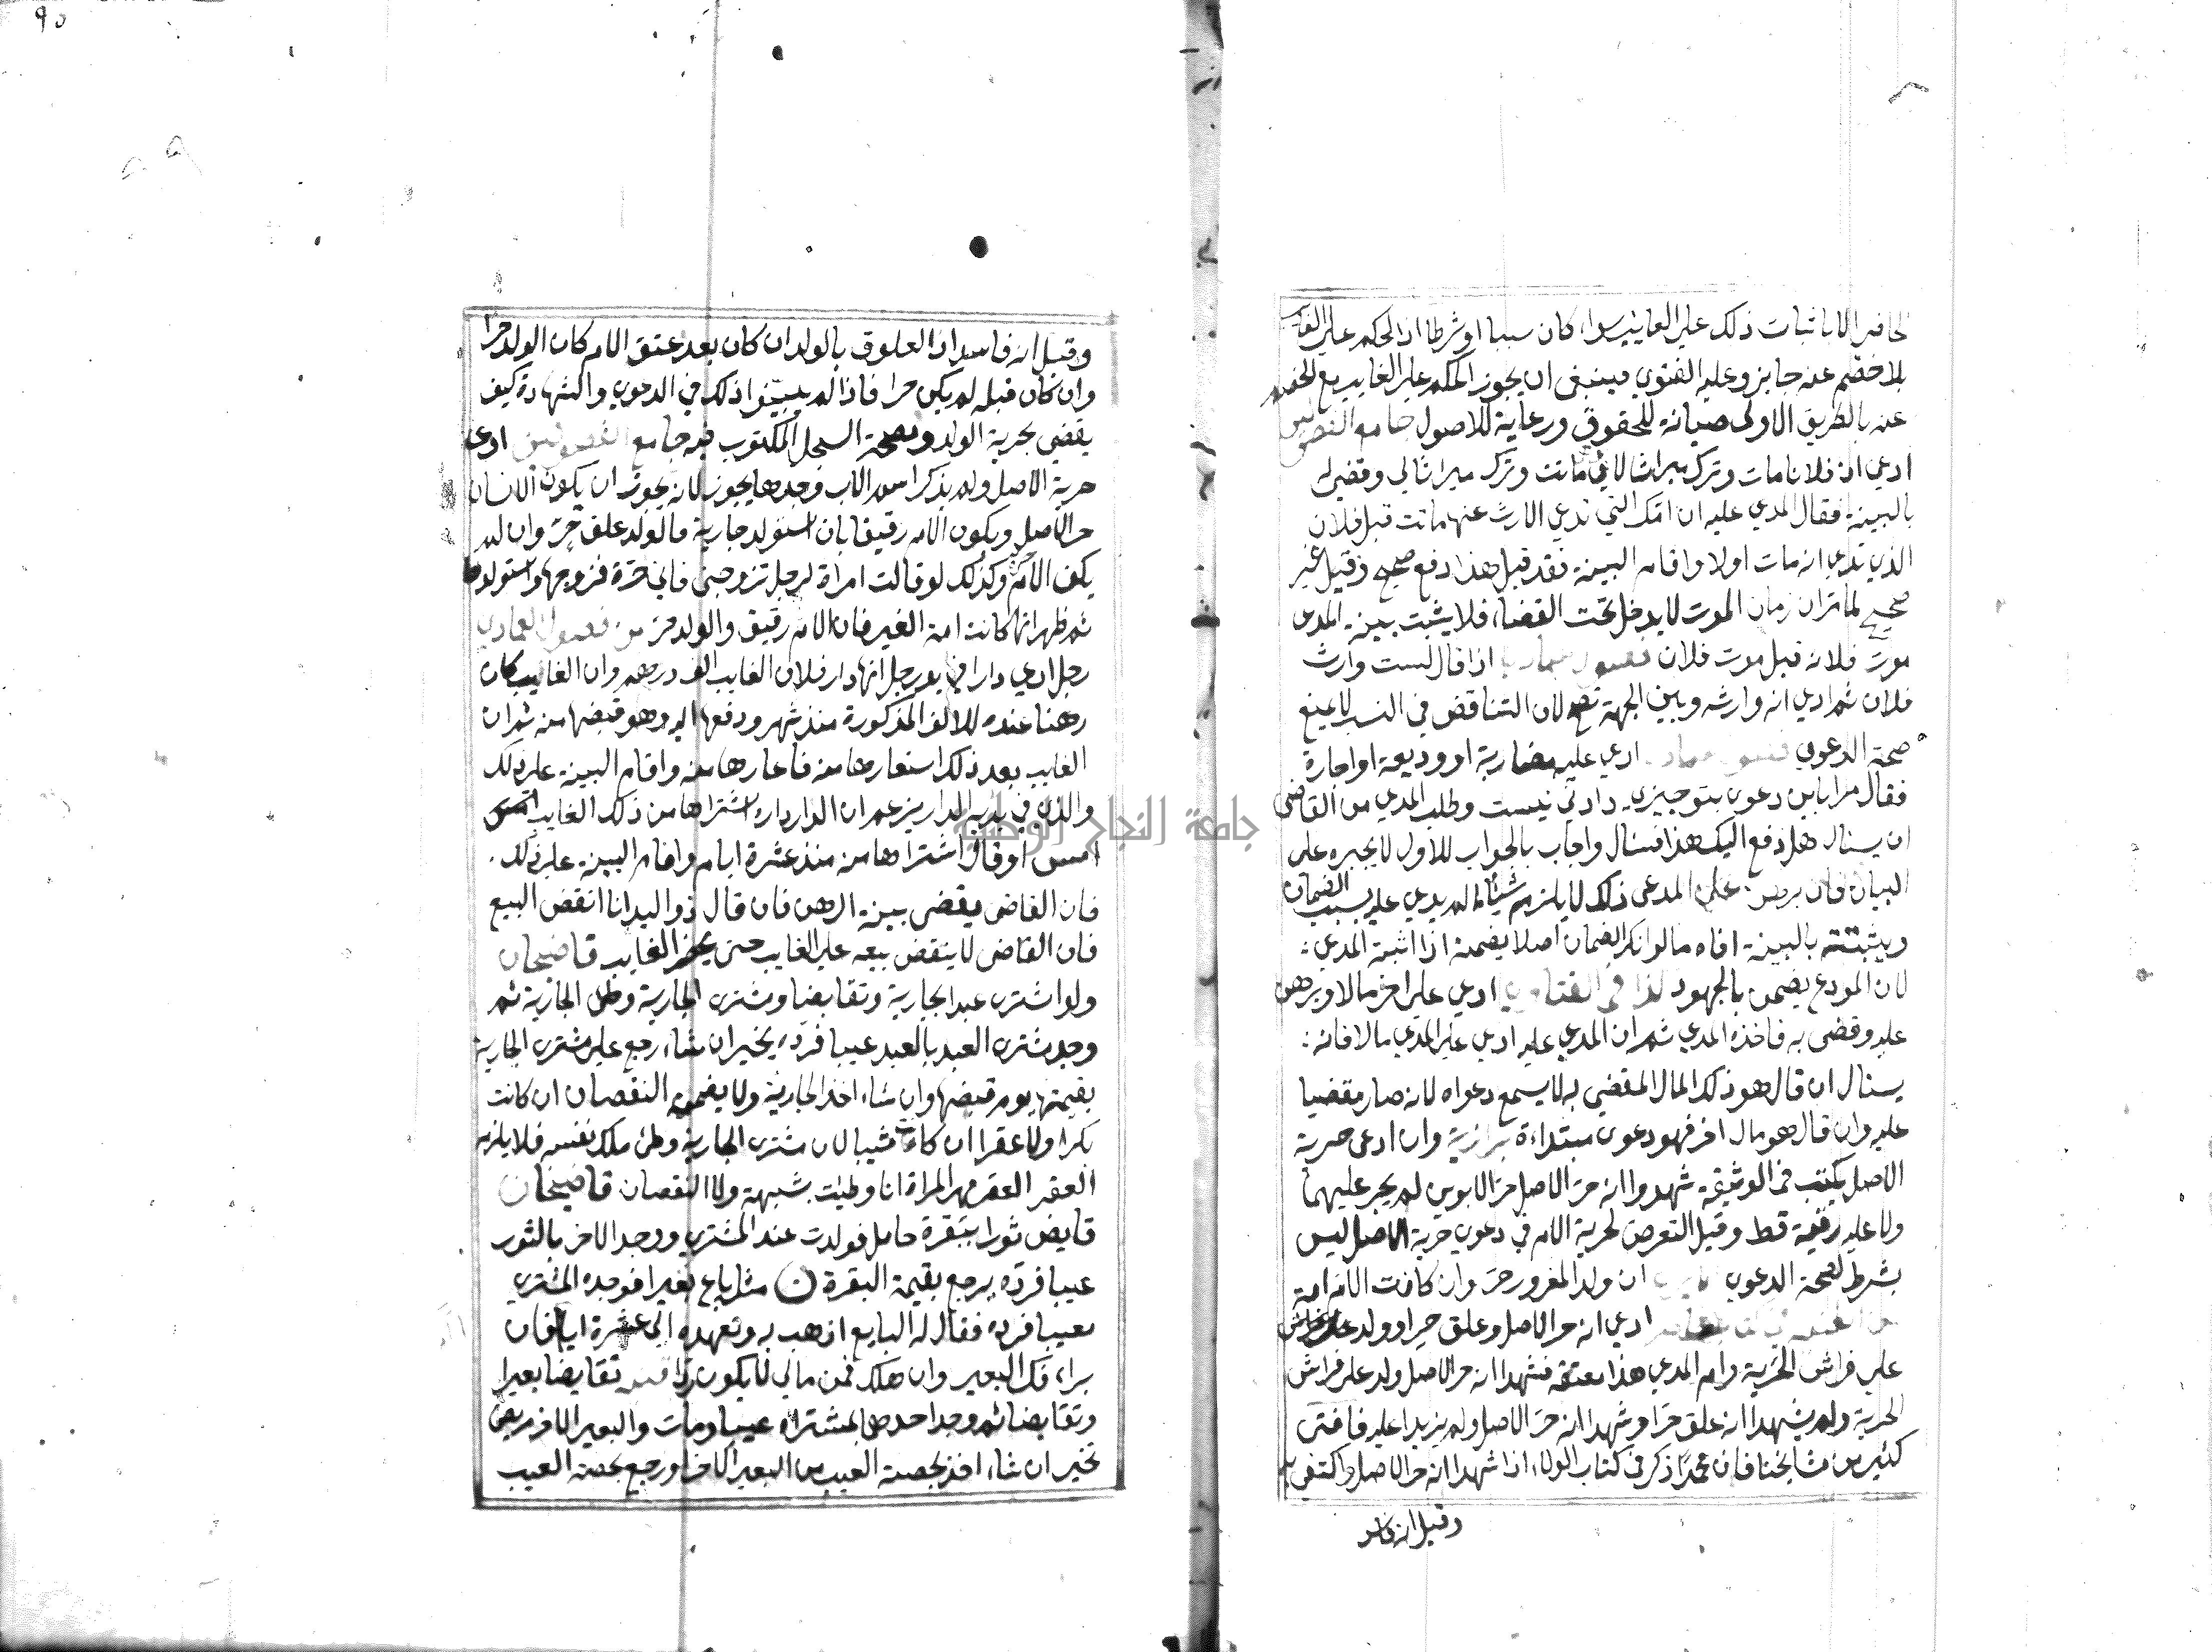 الا باثبات ذلك على الغايب سواء كان سببا او شرطا اذ الحكم على الغايب
بلا خصم عنه جايز وعليه الفتوى فينبغي ان يجوز الحكم على الغايب مع الخصم
عنه بالطريق الاولى صيانة للحقوق ورعاية للاصول جامع الفصولين
ادعى ان فلانا مات وترك ميراثا لامي ماتت وترك ميراثا لي وقضى له
بالبينة فقال المدعي عليه ان امك التي تدعي الارث عنها ماتت قبل فلان
الذي تدعي انه مات اولا واقام البينة فقد قيل هذا دفع صحيح وقيل غير
صحيح لما مر ان زمان الموت لا يدخل تحت القضاء فلا يثبت ببينة المدعي
موت فلانة قبل موت فلان فصول عمادي اذا قال لست وارث
فلان ثم ادعى انه وارثه وبين الجهة تصح لان التناقض في النسب لا يمنع
صحة الدعوي فصول عمادي ادعى عليه مضاربة او وديعة او اجارة
فقال مرا باين دعوى بتو چيزي دادني نيست وطلب المدعي من القاضي
ان يسئال هل دفع اليك هذا فسئال واجاب بالجواب الاول لا يجبره على
البيان فان برهن على المدعى ذلك لا يلزمه شيئا ما لم يدعي عليه بسبب الضمان
ويثبتته بالبينة اقاه مالو انكر الضمان اصلا يضمنه اذا اثبته المدعي
لان المودع يضمن بالجهود كذا في الفتاوى ادعى على اخر مالا وبرهن
عليه وقضى به فاخذه المدعي ثم ان المدعي عليه ادعى على المدعي مالا فانه
يسئال ان قال هو ذلك المال المقضي به لا يسمع دعواه لانه صار مقضيا
عليه وان قال هو مال اخر فهو دعوى مبتداءة بزازية وان ادعى حرية
الاصل يكتب في الوثيقة شهدوا انه حر الاصل حر الابوين لم يجر عليهما
ولا عليه رقية قط وقيل التعرض لحرية الام في دعوي حرية الاصل ليس
بشرط لصحة الدعوي ان ولد المغرور حر وان كانت الام امة
ادعى انه حر الاصل وعلق حرا وولد على فراش
على فراش الحرية وام المدعي هذا معتقة فشهدا انه حر الاصل ولد على فراش
الحرية ولم يشهدا انه علق حرا وشهدا انه حر الاصل ولم يزيدا عليه فافتى
كثير من مشايخنا فان محمدا ذكر في كتاب الولاء اذا شهدا انه حر الاصل واكتفي به
وقيل انه فاسد
٩٥
وقيل انه فاسد اذ العلوق بالولد ان كان بعد عتق الام كان الولد حرا
وان كان قبله لم يكن حرا فاذا لم يبينوا ذلك في الدعوي والشهادة كيف
يقضي بحرية الولد وبصحة السجل المكتوب فيه جامع الفصولين ادعى
حرية الاصل ولم يذكر اسم الاب وجدها يجوز لانه يجوز ان يكون الانسان
حر الاصل ويكون الام رقيقا بان استولد جارية فالولد علق حر وان لم
يكن الام وكذلك لو قالت امراة لرجل تزوجني فاني حرة فزوجها واستولدها
ثم ظهر انها كانت امة الغير فان الام رقيق والولد حر من فصول العمادي
رجل ادعي دارا في يد رجل انها دار فلان الغايب الف درهم وان الغايب كان
رهنا عنده للالف المذكورة منذ شهر ودفعها اليه وهو قبضها منه ثم ان
الغايب بعد ذلك استعارها منه فاعارها منه واقام البينة على ذلك
والذي في يديه الدار يزعم ان الدار داره اشتراها من ذلك الغايب امس
امس او قال اشتراها منه منذ عشرة ايام واقام البينة على ذلك
فان القاضي يقضي ببينة الرهن فان قال ذو اليد انا انقض البيع
فان القاضي لا ينقض بيعه على الغايب حتى يحضر الغايب قاضيخان
ولو اشترى عبدا بجارية وتقابضا ومشتري الجارية وطئ الجارية ثم
وجد مشتري العبد بالعبد عيبا فرده يخير ان شاء رجع على مشتري الجارية
بقيمتها يوم قبضها وان شاء اخذ الجارية ولا يضمنه النقصان ان كانت
بكرا ولا عقرا ان كانت ثيبا لان مشتري الجارية وطئ ملك نفسه فلا يلزمه
العقر العقر مهر المراة اذا وطئت بشبهة ولا النقصان قاضيخان
قايض ثورا ببقرة حامل فولدت عند المشتري ووجد الاخر بالثور
عيبا فرده يرجع بقيمة البقرة ن مثل باع بعيرا فوجده المشتري
معيبا فرده فقال له البايع اذهب به وتعهده الى عشرة ايام فان
براء فلك البعير وان هلك فمن مالي لا يكون ردا قنيه تقايضا بعيرا
وتقابضا ثم وجد احدهما بمشتراه عيبا ومات والبعير الاخر مريض
تخير ان شاء اخذ بحصة العيب من البعير الاخر او رجع بحصة العيب
جامعة النجاح الوطنية